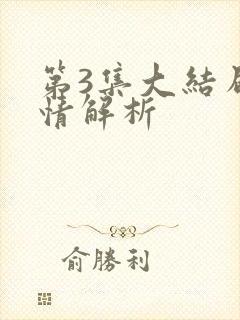 第3集大結
情解析
俞勝利